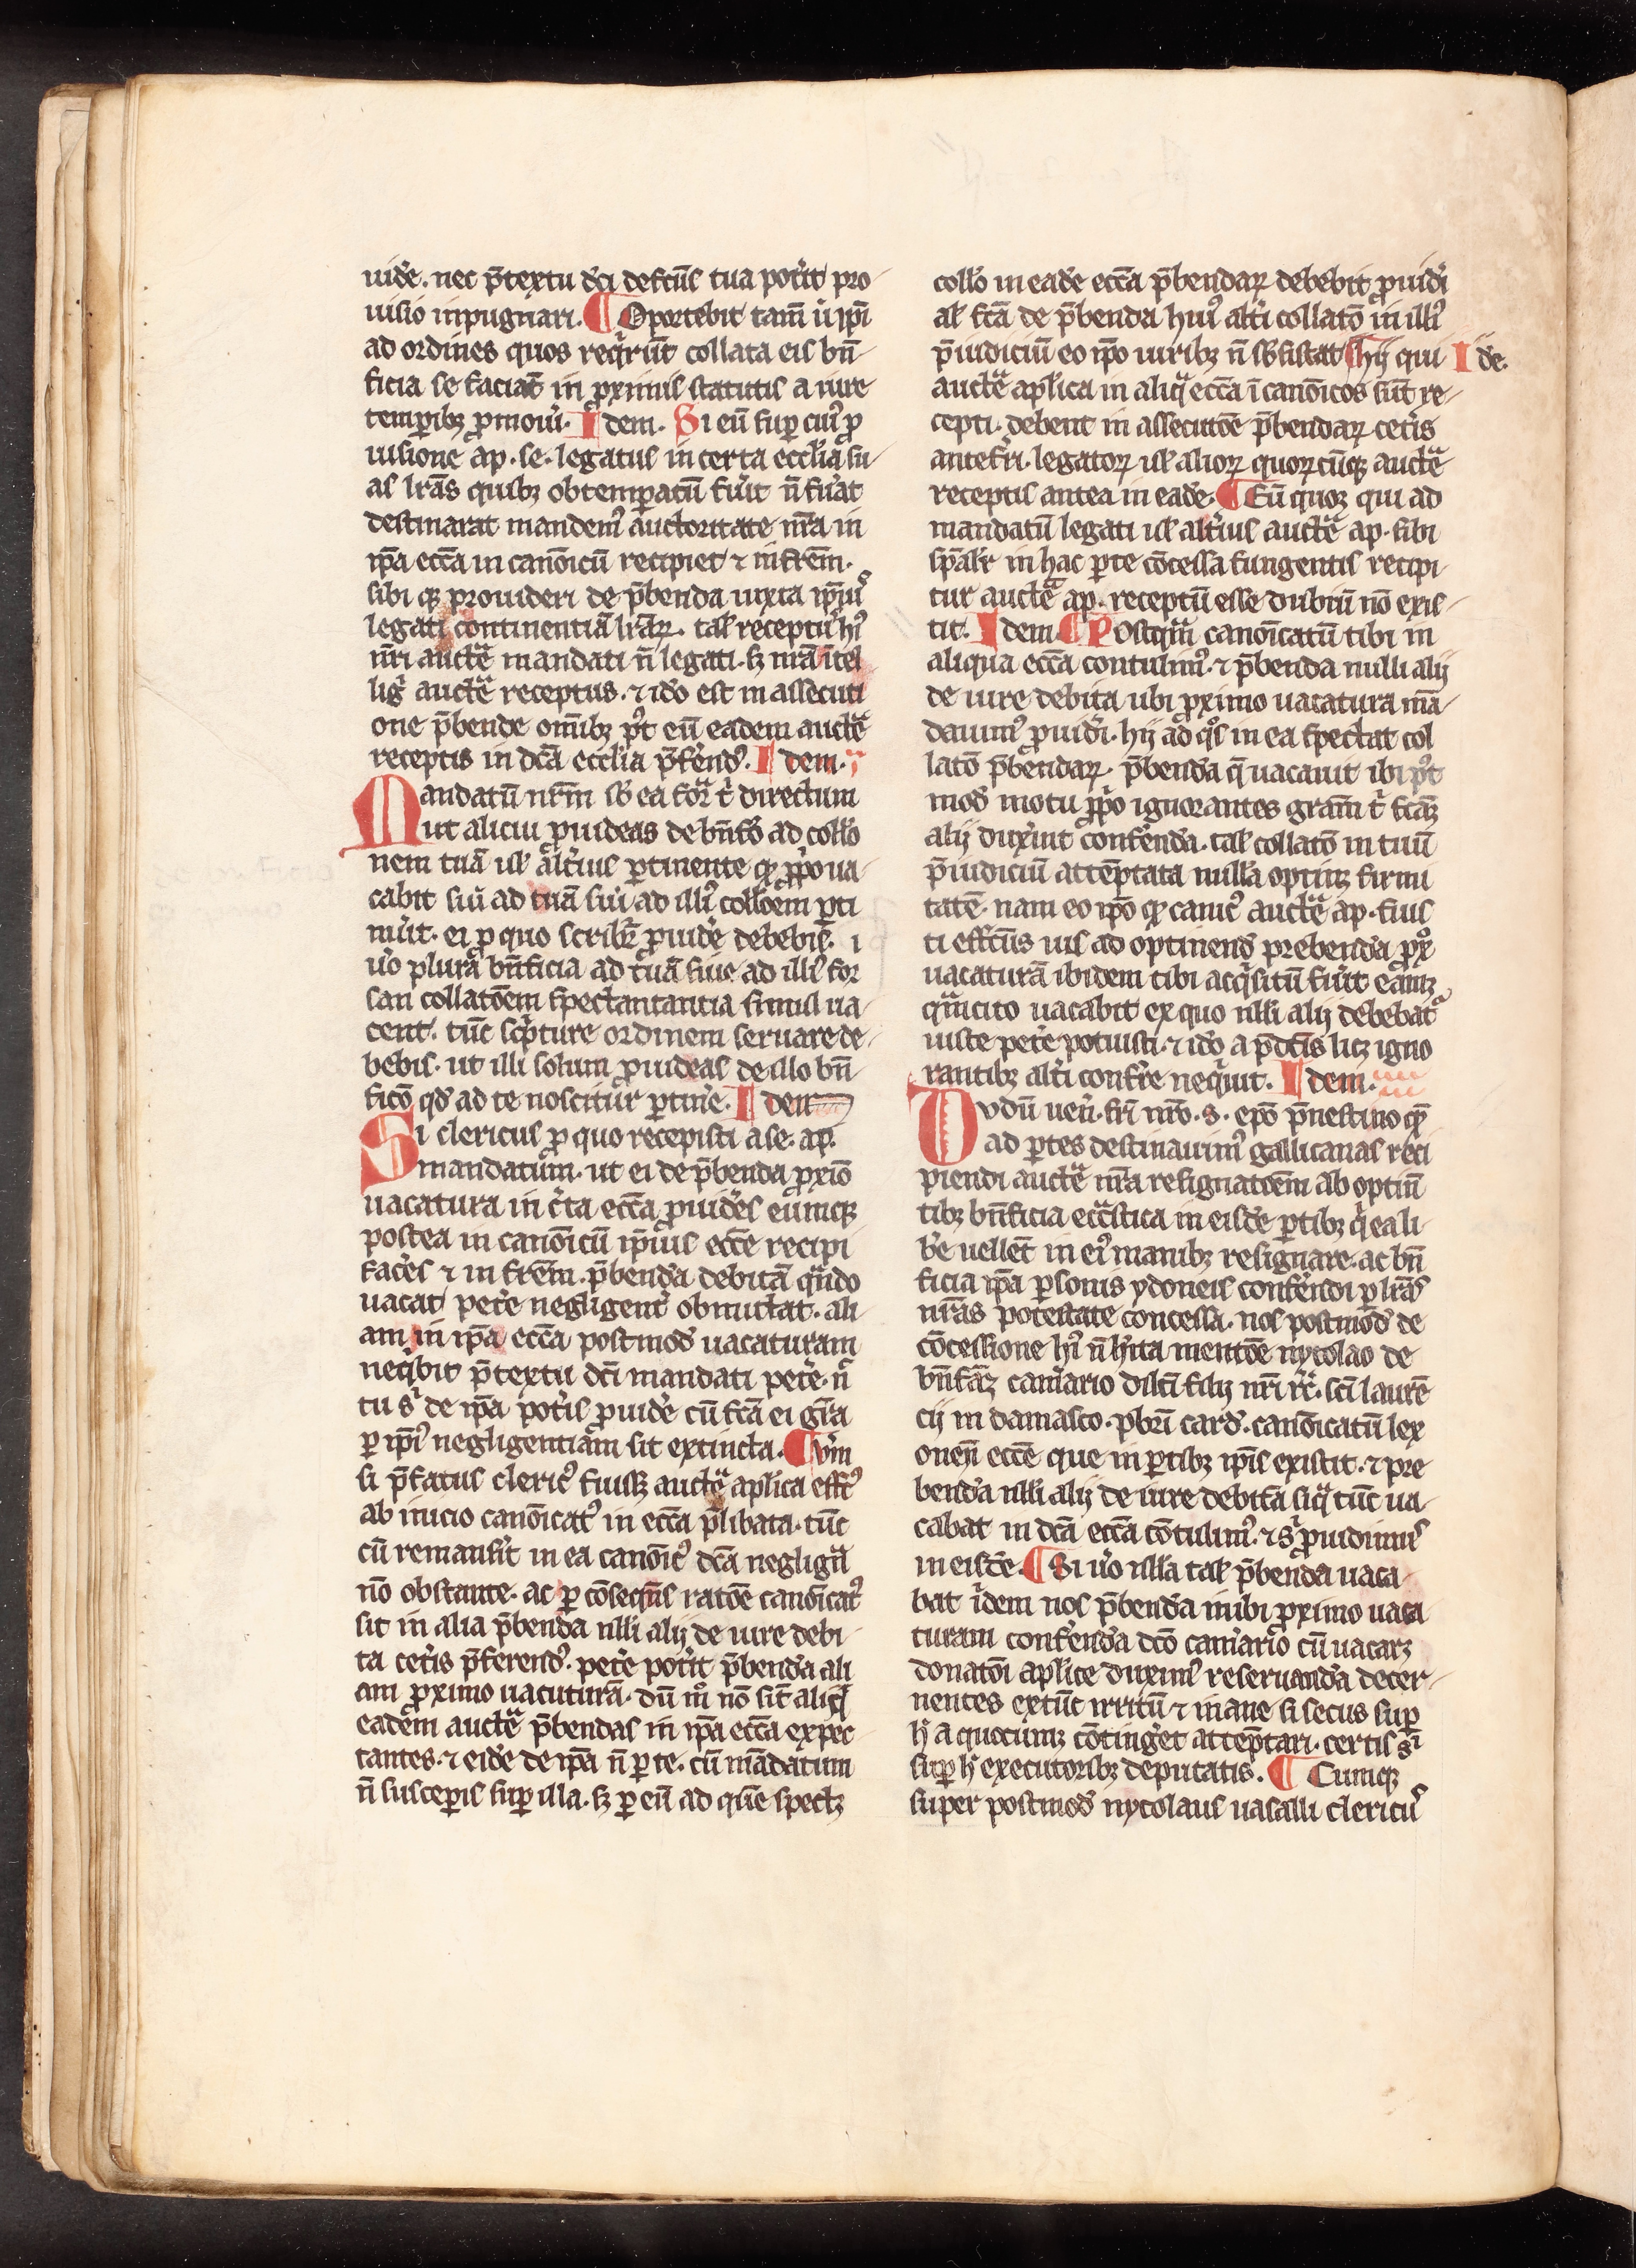 uidē. nec p̄textu dc̄i defectus tua pot̄it pro
uisio inpugnari. ¶ Oportebit tam̄ u̓ ip̄i
ad ordines quos req̓rūt collata eis bn̄
ficia se faciāt in ꝓximis statutis a iure
temꝑibꝫ ꝓmoui̓. Idem. Si eū suꝑ cui᷒ ꝓ
uisione ap. se. legatus in certa eccl̓ia su
as lr̄as quibꝫ obtemꝑatū fu̓it n̄ fu̓at
destinarat mandem᷒ auctoritate nr̄a in
ip̄a ecc̄a in canōicū recipiet ⁊ in fr̄em.
sibi qꝫ prouideri de p̄benda iuxta ip̄iu᷒
legati continentiā lr̄aꝝ. tal̓ receptu᷒ hi᷒
nr̄i auctē mandati n̄ legati. sꝫ nr̄a ītel
lig̓ auctē receptus. ⁊ iđo est in assecuti
one p̄bende om̄ibꝫ p᷒t eū eadem auctē
receptis in dc̄a eccl̓ia p̄fēnd᷒. Idem.
Mandatū nr̄m sb̓ ea for̄ t̓ directum
ut alicui ꝓuideas de bn̄fō ad coll̓o
nem tuā ul̓ alt̓ius ꝑtinente qꝫ ꝓpo ua
cabit siu̓ ad tuā siu̓ ad illi᷒ coll̓oēm ꝑti
nu̓it. ei ꝓ quo scribit᷒ ꝓuidē debebis. i
u̓o plura bn̄ficia ad tuā siue ad illi᷒ for
san collatōem spectantantia simul ua
cent. tūc sc̓pture ordinem seruare de
bebis. ut illi solum ꝓuideas de illo bn̄
ficō qđ ad te noscitur ꝑtin̓e. Idem
Si clericus ꝓ quo recepisti a se. ap.
mandatum. ut ei de p̄benda ꝓxīo
uacatura in c̓ta ecc̄a ꝓuid̓es eumqꝫ
postea in canōicū ip̄ius ecc̄e recipi
fac̓es ⁊ in fr̄em. p̄benda debitā qn̄do
uacat pet̓e negligent̓ obmictat. ali
am in ip̄a ecc̄a postmođ uacaturam
neq̓bit p̄textu dc̄i mandati pet̓e. n̄
tu s̓ de ip̄a pot̓is ꝓuid̓e cū fc̄a ei gr̄a
ꝑ ip̄i᷒ negligentiam sit extincta. ¶ Vm̄
si p̄fatus cleric᷒ fuisꝫ auctē apl̓ica effc᷒
ab inicio canōicat᷒ in ecc̄a p̄libata. tūc
cū remansit̓ in ea canōic᷒ dc̄a neglign̄a
nō obstante. ac ꝑ cōseq̄ns ratōe canōicat᷒
sit in alia p̄benda nll̓i alij de iure debi
ta cet̓is p̄ferend᷒. pet̓e pot̓it p̄benda ali
am ꝓximo uacuturā. dū m̊ nō sit aliq̓
eadem auctē p̄bendas in ip̄a ecc̄a expec
tantes. ⁊ eid̓e de ip̄a n̄ ꝑ te. cū mādatum
n̄ susceꝑis suꝑ illa. sꝫ ꝑ eū ad quē spectꝫ
coll̓o in ead̓e ecc̄a p̄bendaꝝ debebit ꝓuid̓i
al̓ fc̄a de p̄benda hui᷒ alt̓i collatō in illi᷒
p̄iudiciū eo ip̄o uiribꝫ n̄ sb̓sistat ¶ Hij qui Idē.
auctē apl̓ica in aliq̓ ecc̄a ī canōicos sūt re
cepti. debent in assecutōe p̄bendaꝝ cet̓is
antefr̓i. legatoꝝ ul̓ alioꝝ quoꝝcūqꝫ auctē
receptis antea in eade. ¶ Eū quoqꝫ qui ad
mandatū legati ul̓ alt̓ius auctē ap. sibi
sp̄alr̓ in hac ꝑte cōcessa fungentis recipi
tur auctē ap. receptū esse dubiū nō exis
tit. Idem. ¶ Postqm̄ canōicatū tibi in
aliqua ecc̄a contulim᷒. ⁊ p̄benda nulli alij
de iure debita ubi ꝓximo uacatura mā
dauim᷒ ꝓuid̓i. hij ad q̊s in ea spectat col
latō p̄bendaꝝ. p̄benda q̄ uacauit ibi p᷒t
mođ motu ꝓp̓o ignorantes gram̄ t̓ fcāꝫ
alij dux̓int conf̓enda. tal̓ collatō in tuū
p̄iudiciū attēptata nulla optinꝫ firmi
tatē. nam eo ip̄o qꝫ canic᷒ auctē ap. fuis
ti effctūs ius ad optinend̓ prebenda ꝓx̊
uacaturā ibidem tibi acq̓situ fu̓it eāmqꝫ
qm̄cito uacabit ex quo nll̓i alij debebat᷒
iuste pet̓e potuisti. ⁊ iđo a p̄dc̄is licꝫ igno
rantibꝫ alt̓i confr̓e neq̓uit. Idem.
Dvdū uen̓. fr̄i nr̄o. s. ep̄o p̄nestino qꝫ
ad ꝑtes destinauim᷒ gallicanas reci
piendi auctē nr̄a resignatōem ab optin̄
tibꝫ bn̄ficia ecc̄astica in eisdē ꝑtibꝫ q̓ ea li
b̓e uellēt in ei᷒ manibꝫ resignare. ac bn̄
ficia ip̄a ꝑsonis ydoneis conf̓endi ꝑ lr̄as
nr̄as potestate concessa. nos postmođ de
cōcessione hi᷒ n̄ h̓ita mentōe nycolao de
bn̄fāꝫ cam̓ario dilc̄i filij nr̄i .R̓. sc̄i laurē
cij in damasco. pbr̄i card̓. canōicatū lex
onen̄ ecc̄e que in ꝑtibꝫ ip̄is existit. ⁊ pre
benda nll̓i alij de iure debita siq̓ tūc ua
cabat in dc̄a ecc̄a cōtulim᷒. ⁊ s̓ ꝓuidimus
in eisdē. ¶ Si u̓o nll̓a tal̓ p̄benda uaca
bat īdem nos p̄benda inibi ꝓximo uaca
turam conf̓enda dc̄o cam̓ario cū uacarꝫ
donatōi apl̓ice duxim᷒ reseruanda decer
nentes extūc irritū ⁊ inane si secus suꝑ
h̓ a quocumqꝫ cōting̓et attēptari. certis s̓
suꝑ h̓ executoribꝫ deputatis. ¶ Cumqꝫ
super postmođ nycolaus uasalli clericu᷒